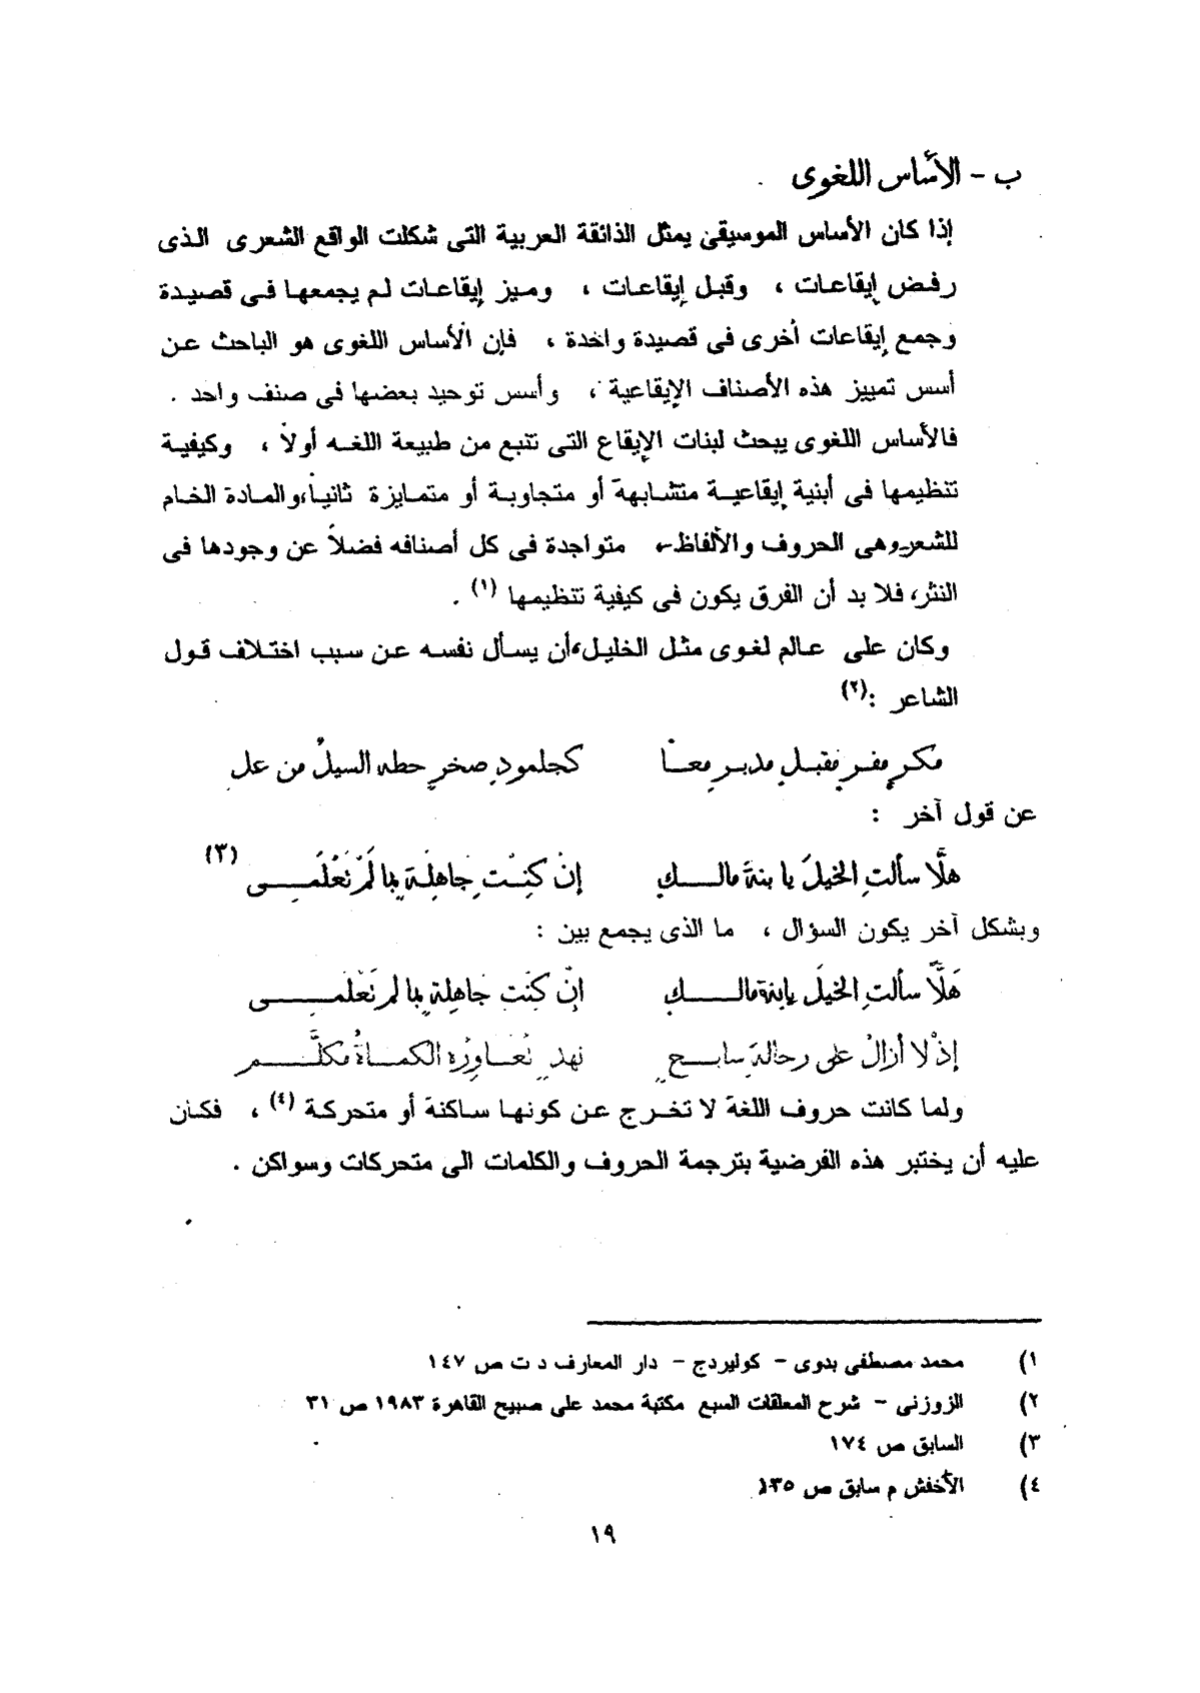 ب – الأساس اللغوى
إذا كان الأساس الموسيقى يمثل الذائقة العربية التى شكلت الواقع الشعرى الذى
رفض إيقاعات ، وقبل إيقاعات ، وميز إيقاعات لم يجمعها فى قصيدة
وجمع إيقاعات أخرى فى قصيدة واحدة ، فإن الأساس اللغوى هو الباحث عن
أسس تمييز هذه الأصناف الإيقاعية ، وأسس توحيد بعضها فى صنف واحد .
فالأساس اللغوى يبحث لبنات الإيقاع التى تنبع من طبيعة اللغه أولاً ، وكيفية
تنظيمها فى أبنية إيقاعية متشابهة أو متجاوبة أو متمايزة ثانياً،والمادة الخام
للشعر-وهى الحروف والألفاظ- متواجدة فى كل أصنافه فضلاً عن وجودها فى
النثر، فلا بد أن الفرق يكون فى كيفية تنظيمها (١) .
وكان على عالم لغوى مثل الخليل،أن يسأل نفسه عن سبب اختلاف قول
الشاعر :(٢)
مكرٍ مفرٍ مقبلٍ مدبرٍ معاً كجلمودِ صخرٍ حطه السيلُ من علِ
عن قول آخر :
هلَّا سألتِ الخيلَ يا بنةَ مالـــكِ إنْ كنِــتِ جاهلِةً بمَا لَمْ تَعْلَمِــــى (٣)
وبشكل آخر يكون السؤال ، ما الذى يجمع بين :
هَلَّا سألتِ الخيلَ يابنة مالـــــكِ إنْ كنتِ جاهلِةً بمِا لم تَعْلَمِـــــى
إذْ لا أزالُ على رحالةِ سابـــحٍ نهدٍ تُعَـاوِرُه الكمــاةُ مُكلَّـــــمِ
ولما كانت حروف اللغة لا تخرج عن كونها ساكنة أو متحركة (٤) ، فكان
عليه أن يختبر هذه الفرضية بترجمة الحروف والكلمات الى متحركات وسواكن .
١) محمد مصطفى بدوى – كوليردج – دار المعارف د ت ص ١٤٧
٢) الزوزنى – شرح المعلقات السبع مكتبة محمد على صبيح القاهرة ١٩٨٣ ص ٣١
٣) السابق ص ١٧٤
٤) الأخفش م سابق ص ١٣٥
١٩